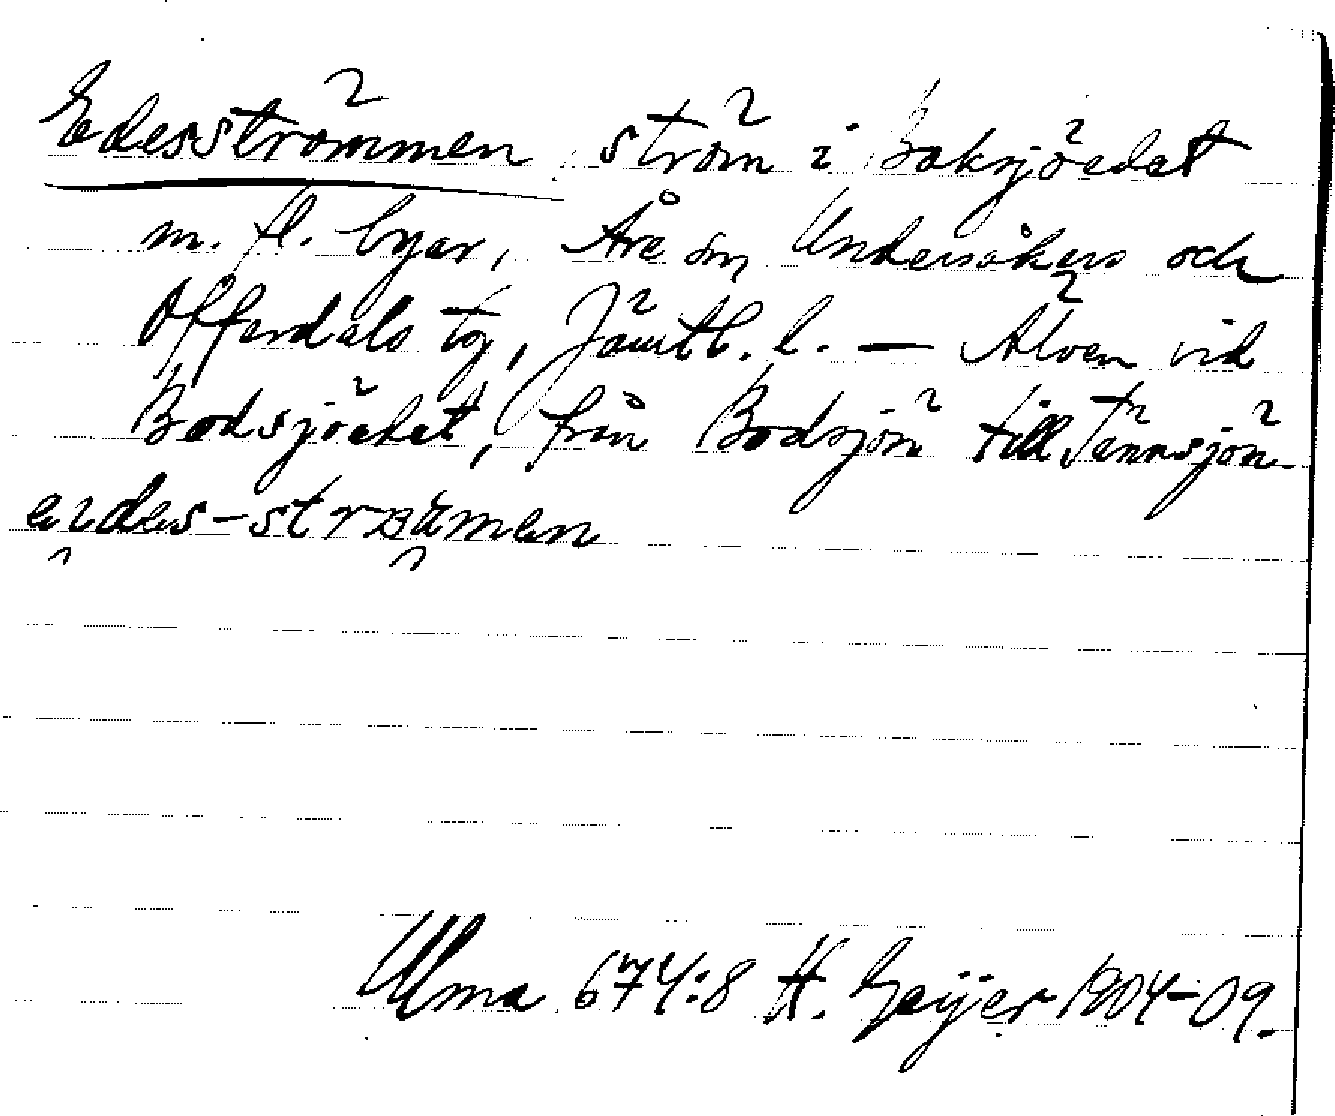 Edesströmmen ström i Baksjöedet
m. fl. byar, Åre sn, Undersåkers och
Offerdals tg, Jämtl. l. — Älven vid
Bodsjöedet, från Bodsjön till Tännsjön
Ulma 674:8 H. Geijer 1904-09.